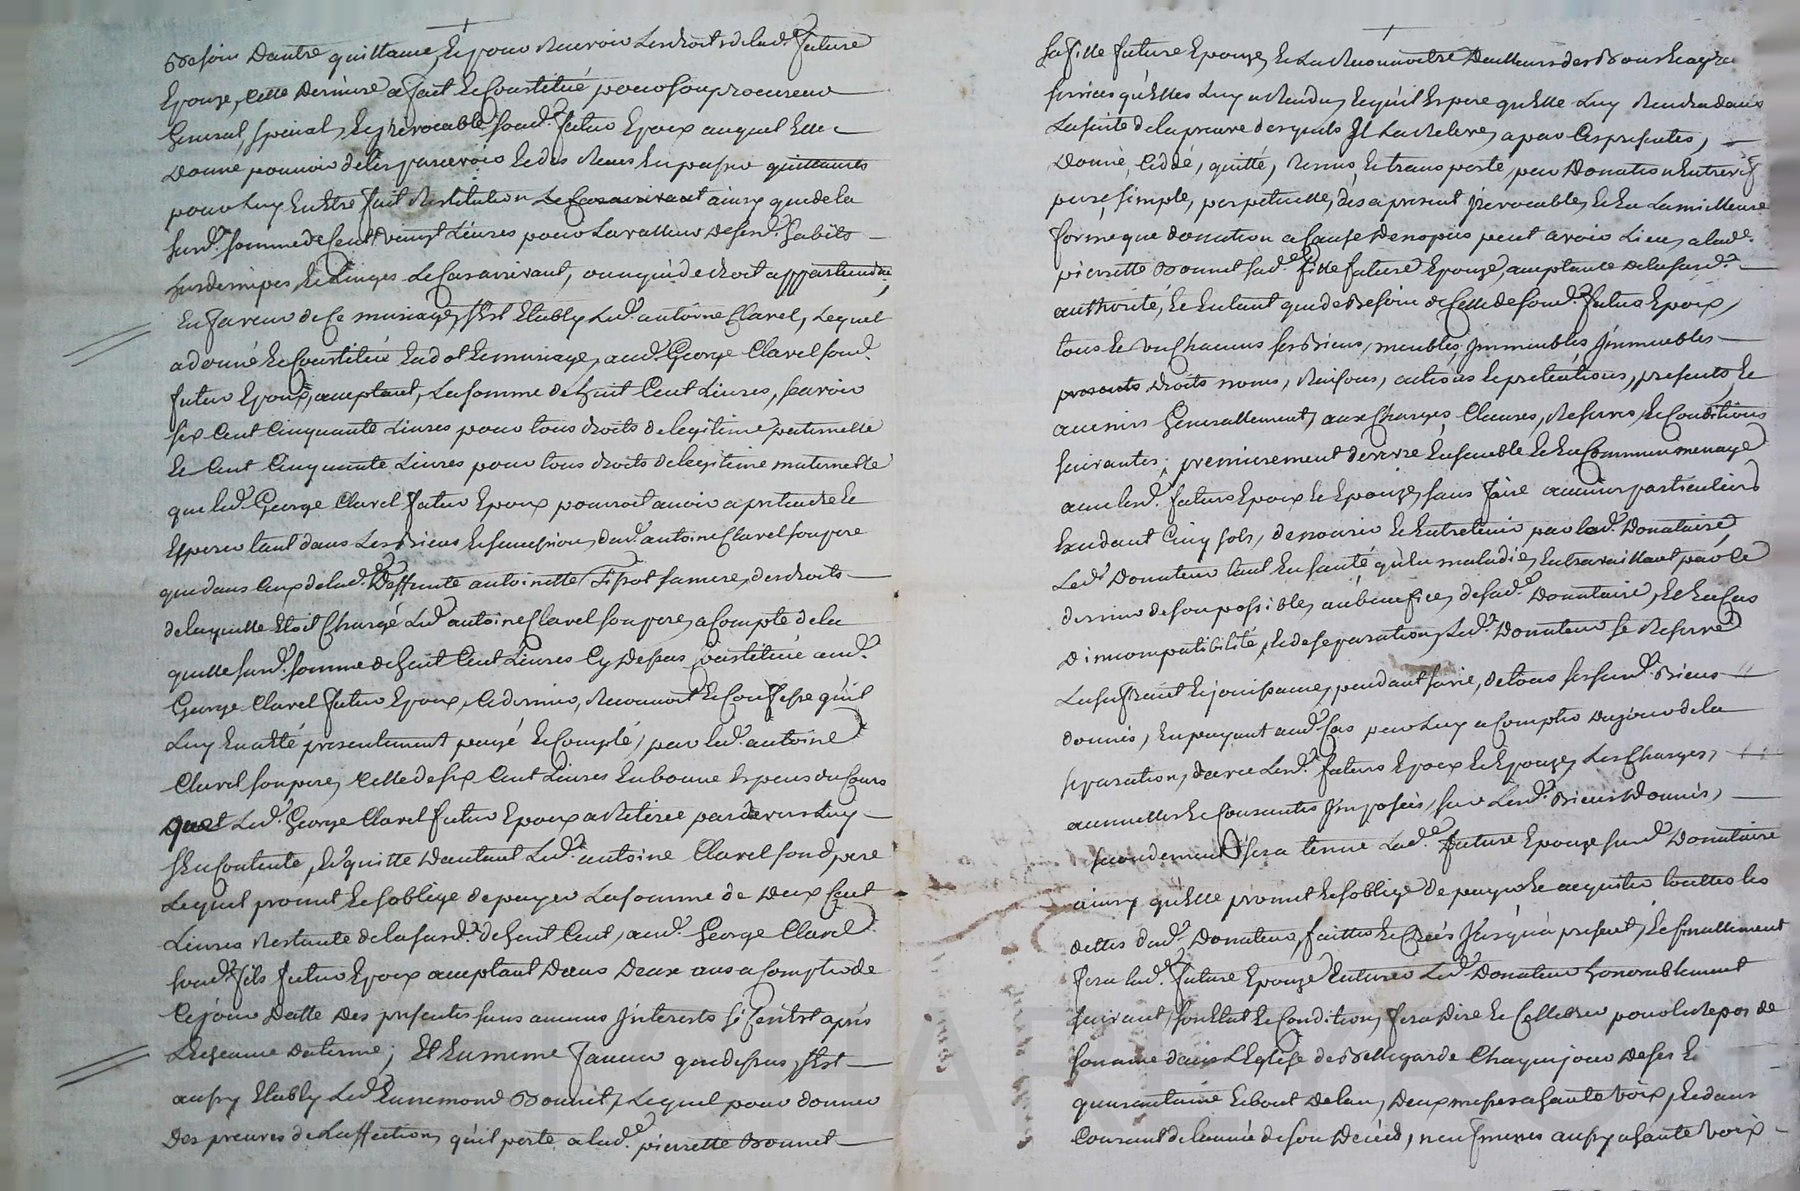 Besoin dautre quittance, Et pour Recevoir Les droits de lad.e future
Epouze, cette Derniere a fait Et Constitué pour son procureur
General, special, Et jrrevocable sond.t futur Epoux auquel Elle
Donne pouvoir de les percevoir Et des Reçus En passer quittances
pour Luy En Etre fait Restitution Le Cas arrivant ainsy que de la
susd.e somme de Cent vingt Livres pour La valleur de sesd.s habits
hardes nipes, Et Linges Le Cas arrivant, ou a qui de droit appartiendra;
En faveur de Ce mariage, s'Est Etably Led.t antoine Clavel, Lequel
a donné Et Constitué En dot Et mariage, aud.t George Clavel sond.t
futur Epoux, acceptant, La somme de huit Cent Livres, scavoir
six Cent Cinquante Livres pour tous droits de legitime paternelle
Et Cent Cinquante Livres pour tous droits de legitime maternelle
que led.t George Clavel futur Epoux pourroit avoir a pretendre Et
Esperer tant dans Les Biens Et succession, dud.t antoine Clavel son pere
que dans Ceux de lad.e Deffunte antoinette sa mere, des droits
de laquelle Etoit Chargé Led.t antoine Clavel son pere, a Compte de la
quelle susd.e somme de huit Cent Livres Cy Dessus Constituée aud.t
George Clavel futur Epoux, Ce dernier, Reconnoit Et Confesse qu'il
Luy En a Eté presentement payé Et Compté, par led.t antoine
Clavel son pere, Celle de six Cent Livres En bonne Especes du Cours
que Led.t George Clavel futur Epoux a Retirée pardevers Luy
s'En Contente, Et quitte Dautant Led.t antoine Clavel sond. pere
Lequel promet Et s'oblige de payer La somme de Deux Cent
Livres Restante de la susd.e de huit Cent, aud.t George Clavel
sond.t fils futur Epoux acceptant Dans Deux ans a Compter de
Ce jour Datte Des presentes sans aucuns jnterests si Ce n'Est après
L'Echeance du terme; Et En meme faveur que dessus, s'Est
aussy Etably Led.t Ennemond Bonnet, Lequel pour donner
Des preuves de L'affection, qu'il porte a lad.e pierrette Bonnet
sa fille future Epouze, Et La Reconnoitre Dailleurs des Bons Et agreables
services qu'Elles Luy a Rendus, Et qu'il Espere qu'Elle Luy Rendra dans
La suite de la preuve desquels Jl La Releve, a par Ces presentes,
Donné, Cedé, quitté, Remis, Et transporté, par Donation Entrevifs
pure, simple, perpetuelle, des a present jrrevocable, Et En La meilleure
forme que donation a Cause de nopces peut avoir Lieu, a lad.e
pierrette Bonnet sad.e fille future Epouze, acceptante De la susd.e
authorité, Et En tant que de Besoin de Celle de sond.t futur Epoux,
tous Et un Chacuns ses Biens, meubles, jmmeubles
droits noms, Raisons, actions Et pretentions, presents Et
avenirs Generallement, aux Charges, Clauses, Reserves, Et Conditions
suivantes; premierement de vivre Ensemble Et En Commun menage
avec lesd.s futurs Epoux Et Epouze, sans faire aucuns particuliers
Excedant Cinq sols, de nourir Et Entretenir par lad.e Donataire,
Led.t Donateur tant En santé qu'En maladie, En travaillant par Ce
dernier de son possible, au benefice, de sad.e Donataire, Et En Cas
D'incompatibilité, Et de separation, Led.t Donateur se Reserve
L'usufruit Et jouissance, pendant sa vie, de tous ses susd.s Biens
donnés, En payant aud.t Cas par Luy a Compter du jour de la
separation, davec Lesd.s futurs Epoux Et Epouze, Les Charges,
annuelles Et Courantes jmposées, sur Lesd.s Biens Donnés,
secondement sera tenue Lad.e future Epouze susd.e Donataire
ainsy qu'Elle promet Et s'oblige De payer Et acquitter touttes les
dettes dud.t Donateur, faittes Et Crées Jusqu'a present, Et finallement
sera lad.e future Epouze Enterrer Led.t Donateur honorablement
suivant son Etat Et Condition, fera Dire Et Cellebrer pour le Repos de
son ame dans L'Eglise de Bellegarde Chaque jour De ses
quarantaine Et bout De lan, Deux messes a haute voix, Et dans
Courant de L'année de son Deced, neuf messes aussy a haute voix